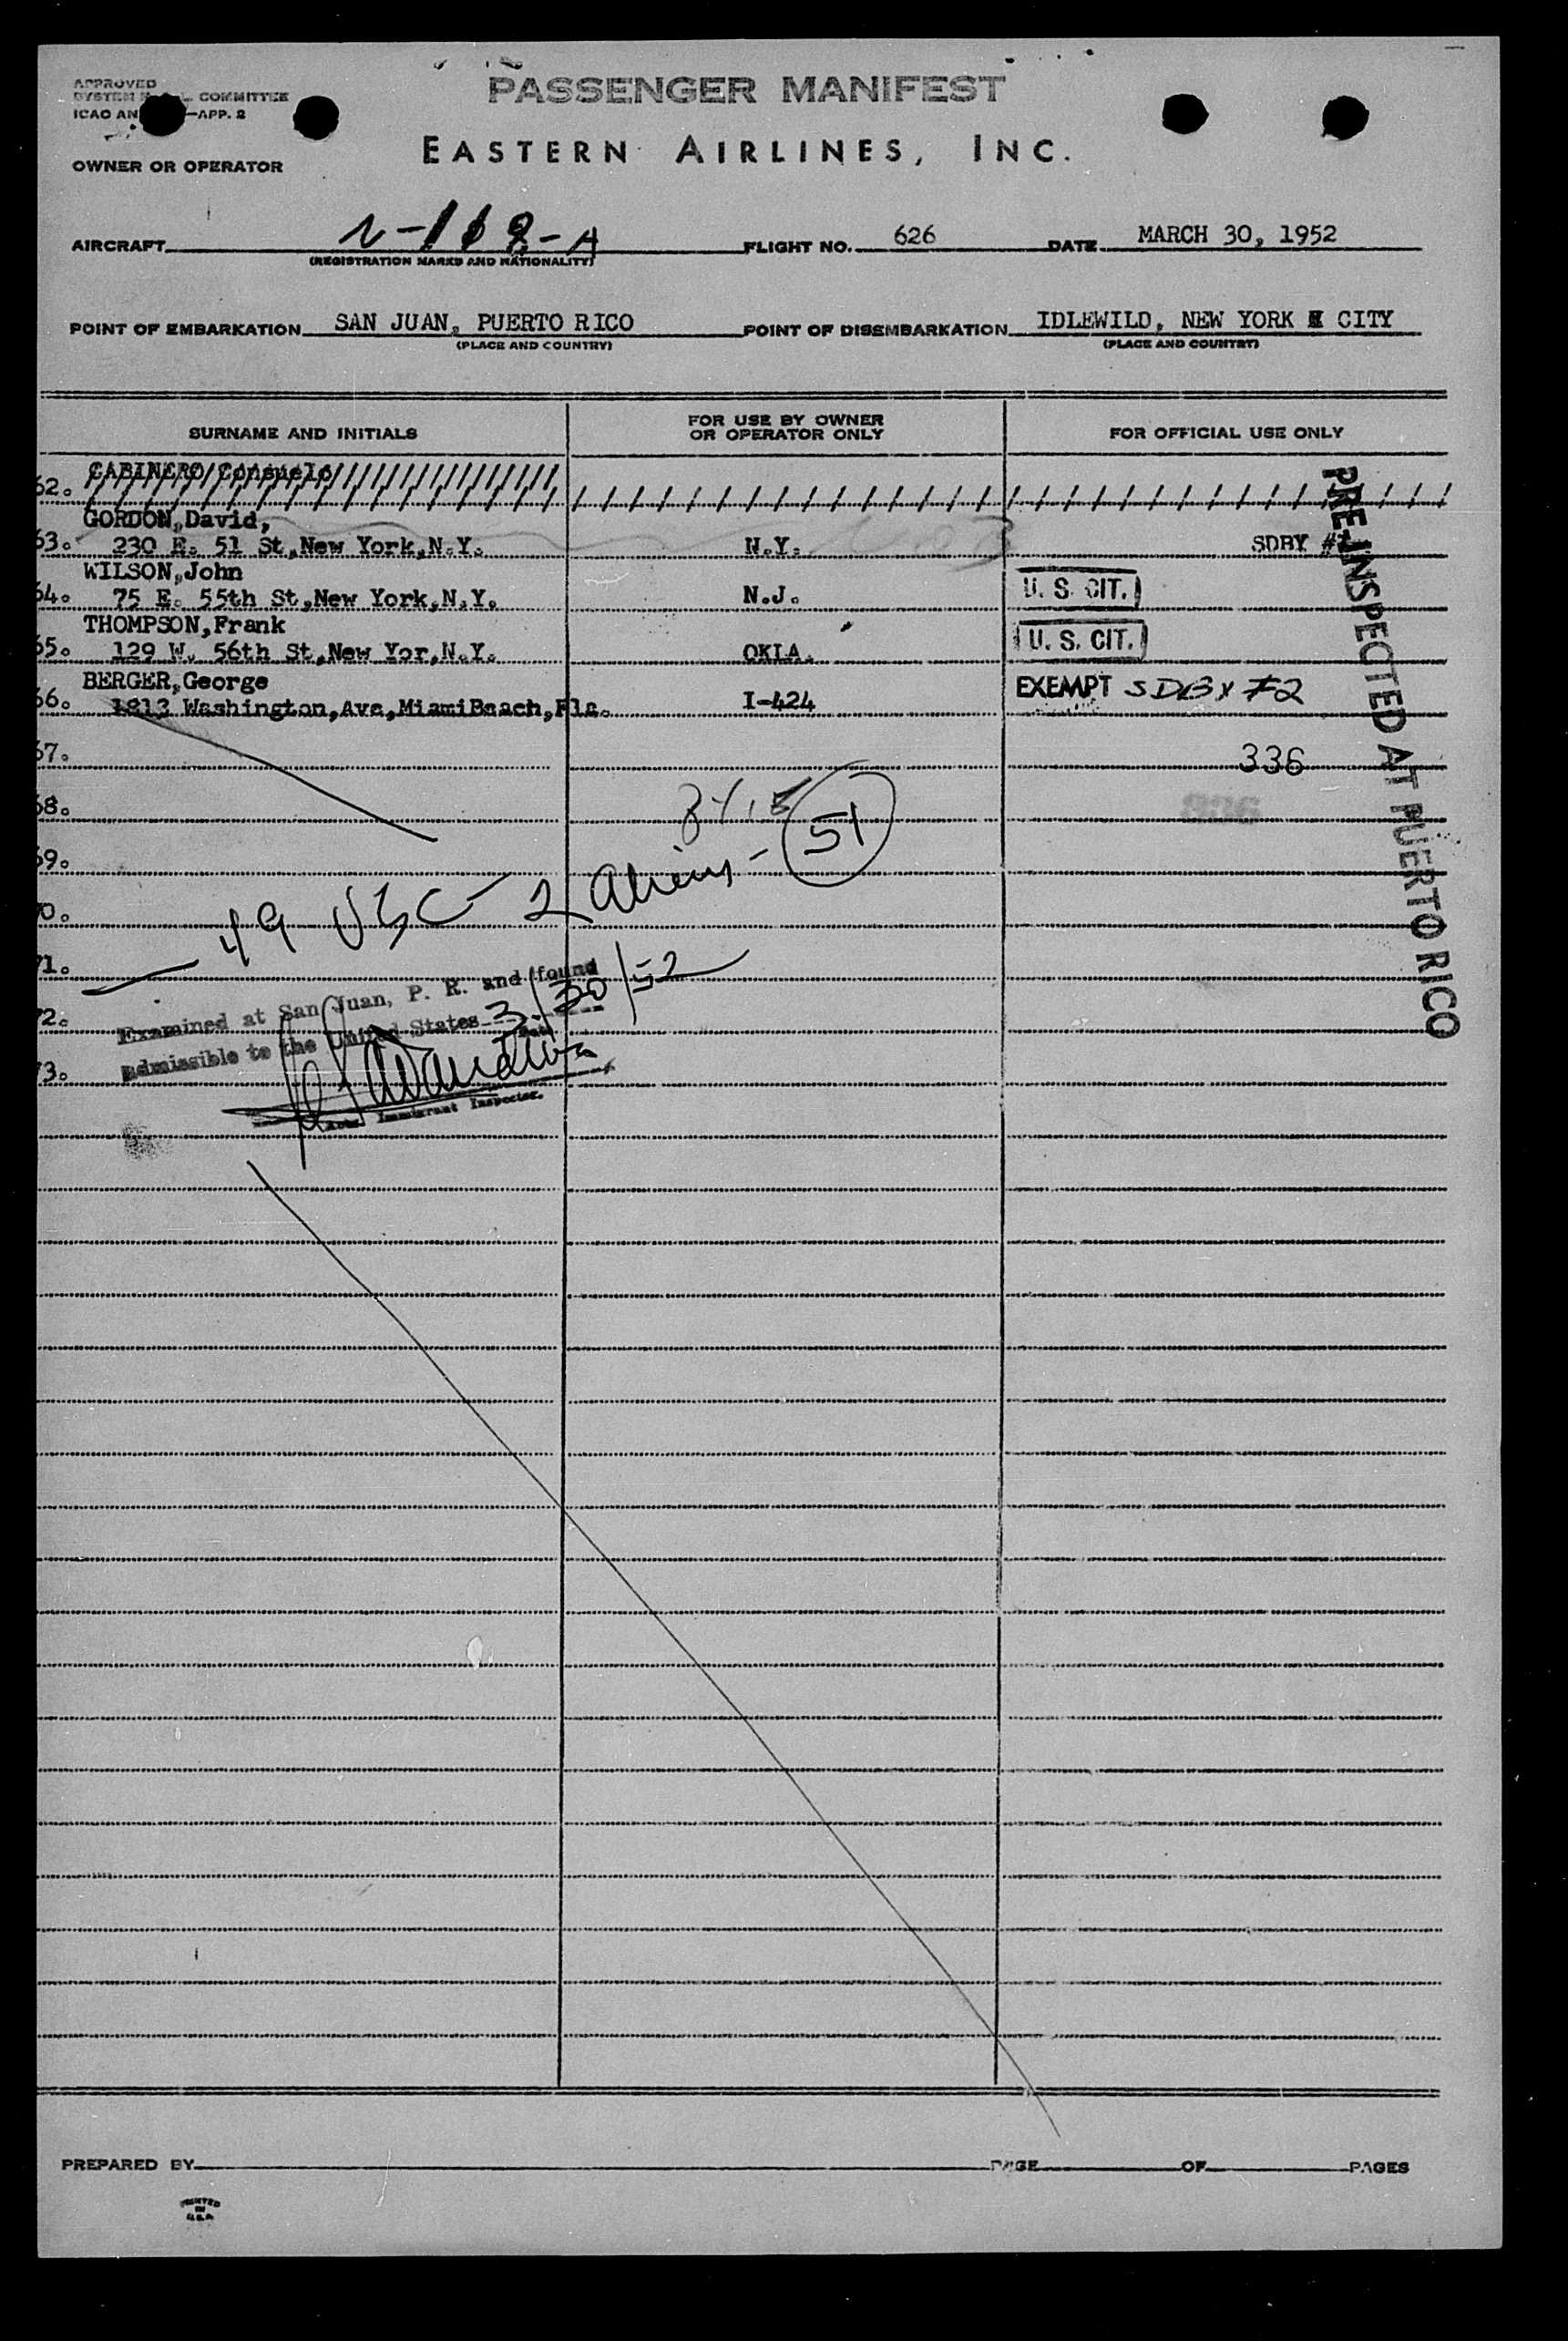 APPROVED
COMMITTEE
ICAO AN —APP. 2
PASSENGER MANIFEST
EASTERN AIRLINES, INC.
OWNER OR OPERATOR
AIRCRAFT N-118-A FLIGHT NO. 626 DATE MARCH 30, 1952
(REGISTRATION MARKS AND NATIONALITY)
POINT OF EMBARKATION SAN JUAN, PUERTO RICO POINT OF DISEMBARKATION IDLEWILD, NEW YORK CITY
(PLACE AND COUNTRY) (PLACE AND COUNTRY)
SURNAME AND INITIALS FOR USE BY OWNER OR OPERATOR ONLY FOR OFFICIAL USE ONLY
62. CABINERO Consuelo
GORDON,David,
63. 230 E. 51 St,New York,N.Y. N.Y. SDBY #
WILSON,John
64. 75 E. 55th St,New York,N.Y. N.J. U. S. CIT.
THOMPSON,Frank
65. 129 W. 56th St,New Yor,N.Y. OKLA. U. S. CIT.
BERGER,George
66. 1813 Washington,Ave,MiamiBeach,Fla. I-424 EXEMPT SDBY #2
67. 336
68. 336
69.
70. 49 USC - 2 Aliens - 51
71.
Examined at San Juan, P. R. and found
72. admissible to the United States 3/30/52
73.
Immigrant Inspector.
PRE-INSPECTED AT PUERTO RICO
PREPARED BY PAGE OF PAGES
PRINTED
IN
U.S.A.